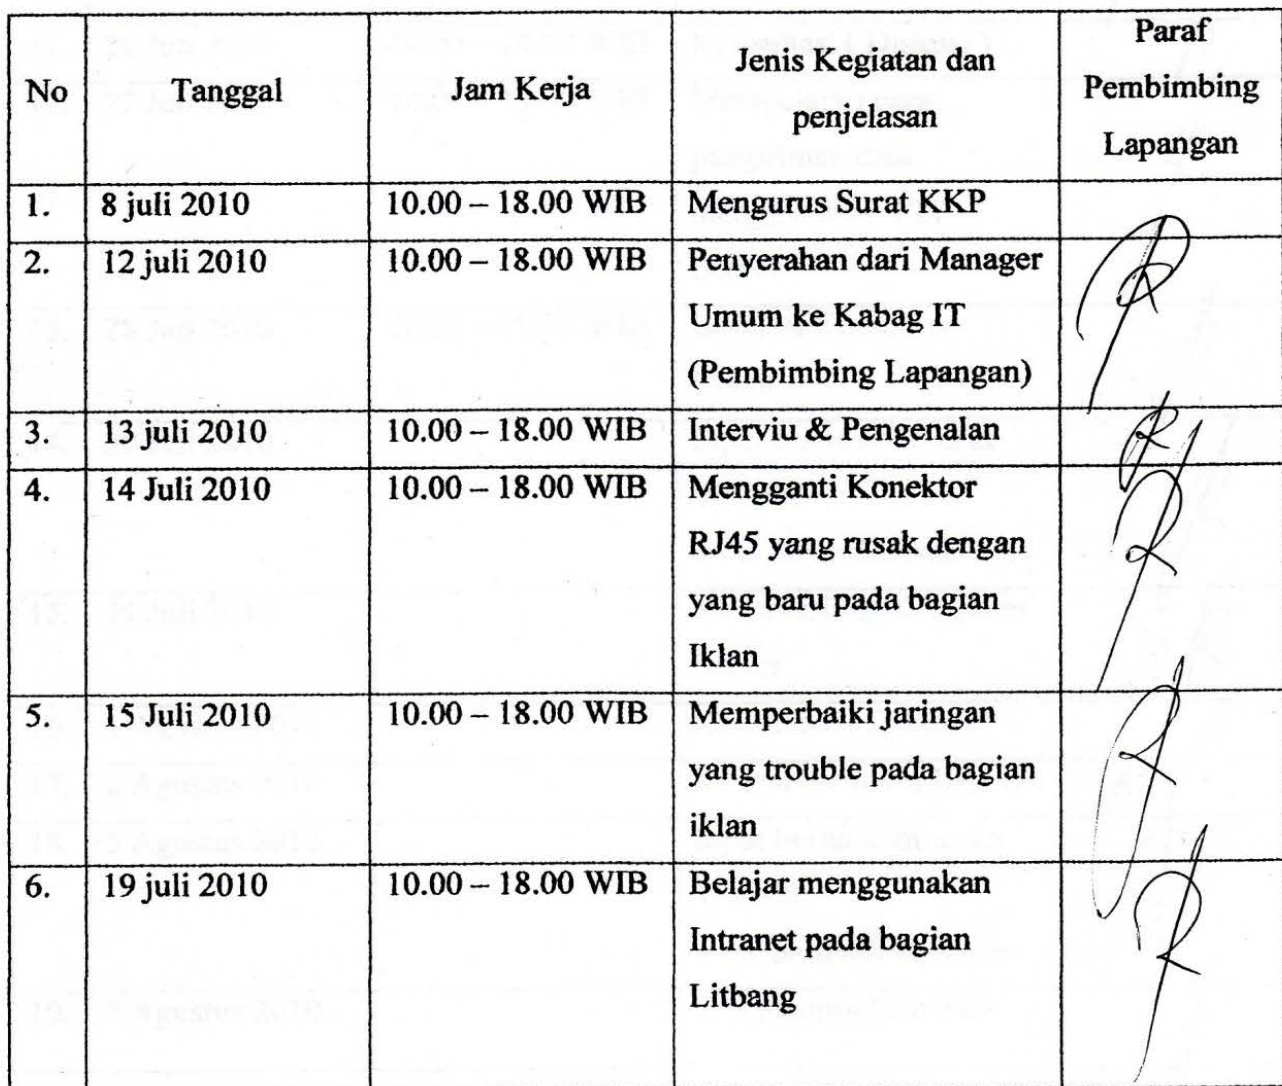 No Tanggal Jam Kerja Jenis Kegiatan dan penjelasan Paraf Pembimbing Lapangan
1. 8 juli 2010 10.00 – 18.00 WIB Mengurus Surat KKP
2. 12 juli 2010 10.00 – 18.00 WIB Penyerahan dari Manager
Umum ke Kabag IT
(Pembimbing Lapangan)
3. 13 juli 2010 10.00 – 18.00 WIB Interviu & Pengenalan
4. 14 Juli 2010 10.00 – 18.00 WIB Mengganti Konektor
RJ45 yang rusak dengan
yang baru pada bagian
Iklan
5. 15 Juli 2010 10.00 – 18.00 WIB Memperbaiki jaringan
yang trouble pada bagian
iklan
6. 19 juli 2010 10.00 – 18.00 WIB Belajar menggunakan
Intranet pada bagian
Litbang